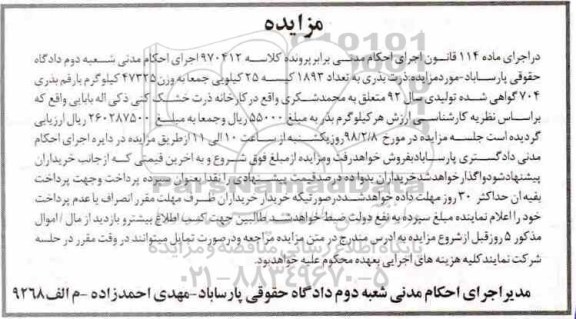 مزایده
دراجرای ماده ۱۱۴ قانون اجرای احکام مدنی برابر پرونده کلاسه ۹۷۰۴۱۲ اجرای احکام مدنی شعبه دوم دادگاه
حقوقی پارساباد-موردمزایده ذرت بذری به تعداد ۱۸۹۳ کیسه ۲۵ کیلویی جمعا به وزن ۴۷۳۲۵ کیلوگرم بارقم بذری
۷۰۴ گواهی شده تولیدی سال ۹۲ متعلق به محمدشکری واقع در کارخانه ذرت خشک کنی ذکی اله بابایی واقع که
براساس نظریه کارشناسی ارزش هر کیلوگرم بذر به مبلغ ۵۵۰۰۰ ریال وجمعا به مبلغ ۲۶۰۲۸۷۵۰۰۰ ریال ارزیابی
گردیده است جلسه مزایده در مورخ ۹۸/۲/۸ روزیکشنبه از ساعت ۱۰ الی ۱۱ ازطریق مزایده در دایره اجرای احکام
مدنی دادگستری پارسابادبفروش خواهدرفت ومزایده ازمبلغ فوق شروع و به اخرین قیمتی که از جانب خریداران
پیشنهادشودواگذارخواهدشدخریداران بدوا ده درصدقیمت پیشنهادی را نقدا بعنوان سپرده پرداخت وجهت پرداخت
بقیه ان حداکثر ۳۰ روز مهلت داده خواهدشددرصورتیکه خریدار خریداران ظرف مهلت مقرر انصراف یا عدم پرداخت
خود را اعلام نماینده مبلغ سپرده به نفع دولت ضبط خواهدشد طالبین جهت کسب اطلاع بیشتر و بازدید از مال / اموال
مذکور ۵ روزقبل ازشروع مزایده به ادرس مندرج در متن مزایده مراجعه ودرصورت تمایل میتوانند در وقت مقرر در جلسه
شرکت نمایند کلیه هزینه های اجرایی بعهده محکوم علیه خواهدبود.
مدیر اجرای احکام مدنی شعبه دوم دادگاه حقوقی پارساباد-مهدی احمدزاده -م الف ۹۲۶۸
ParsNamadData
پایگاه اطلاع رسانی مناقصه و مزایده
۰۲۱-۸۸۳۴۹۶۷۰-۵